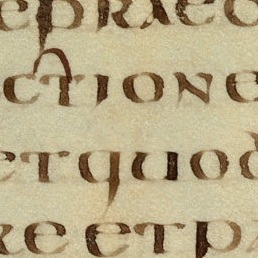 epraeo
ctione
etquod
reetpa